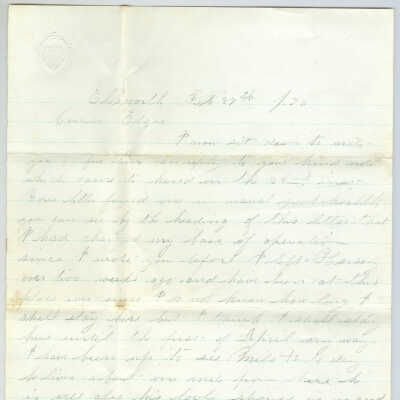 Ellsworth Feb 27th
Cousin Edgar
I now sit down to write
you a few lines in reply to your kind note
which came to hand on the 22nd inst
Your letter found me in usual good health
you can see by the heading of this letter that
I had changed my base of operation
since I wrote you before I left
over two weeks ago and have been at this
place ever since I do not know how long I
shall stay here but I think I shall stay
here until the first of April any way
I have been up to see
he lives about one mile from here he
is